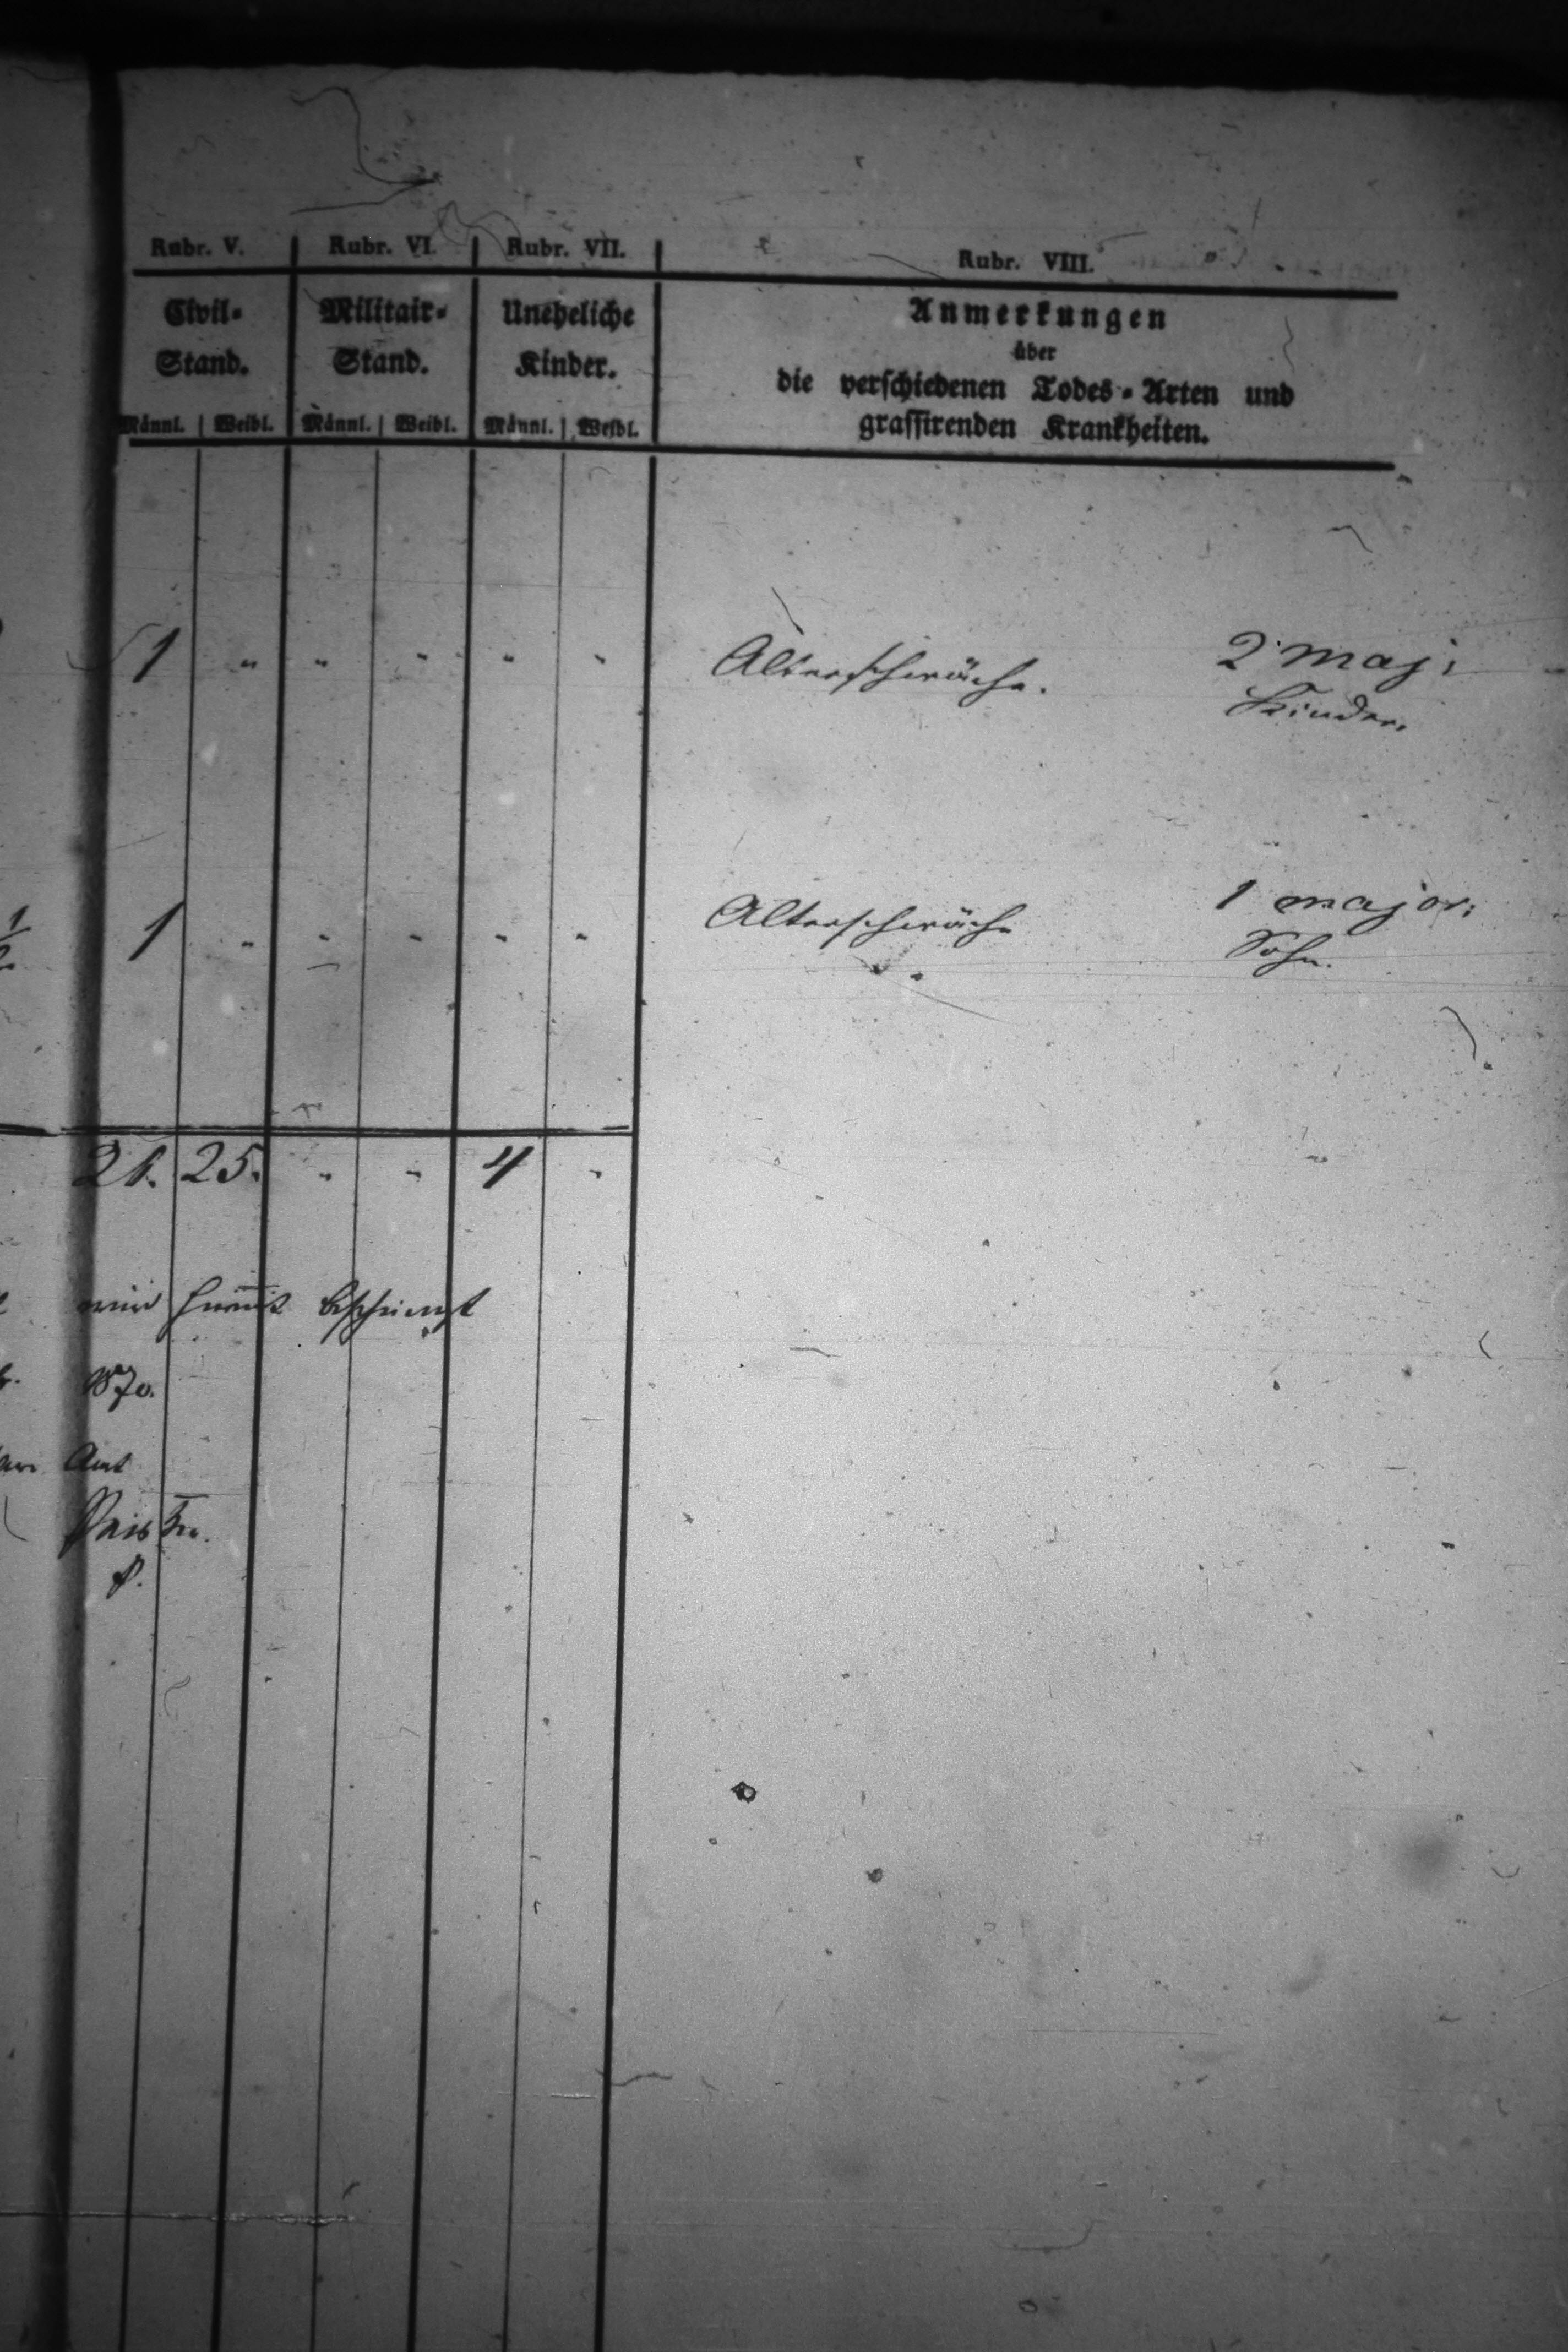 Rubr. V. Rubr. VI. Rubr. VII. Rubr. VIII.
Civil- Militair- Uneheliche Anmerkungen
Stand. Stand. Kinder. über
die verschiedenen Todes-Arten und
Männl. Weibl. Männl. Weibl. Männl. Weibl. grassirenden Krankheiten.
1 " " " " " Altersschwäche. 2 maj:
Kinder.
1 " " " " " Altersschwäche 1 major:
Sohn.
21. 25. " " 4 "
wird hiermit bescheinigt
1870.
Amt